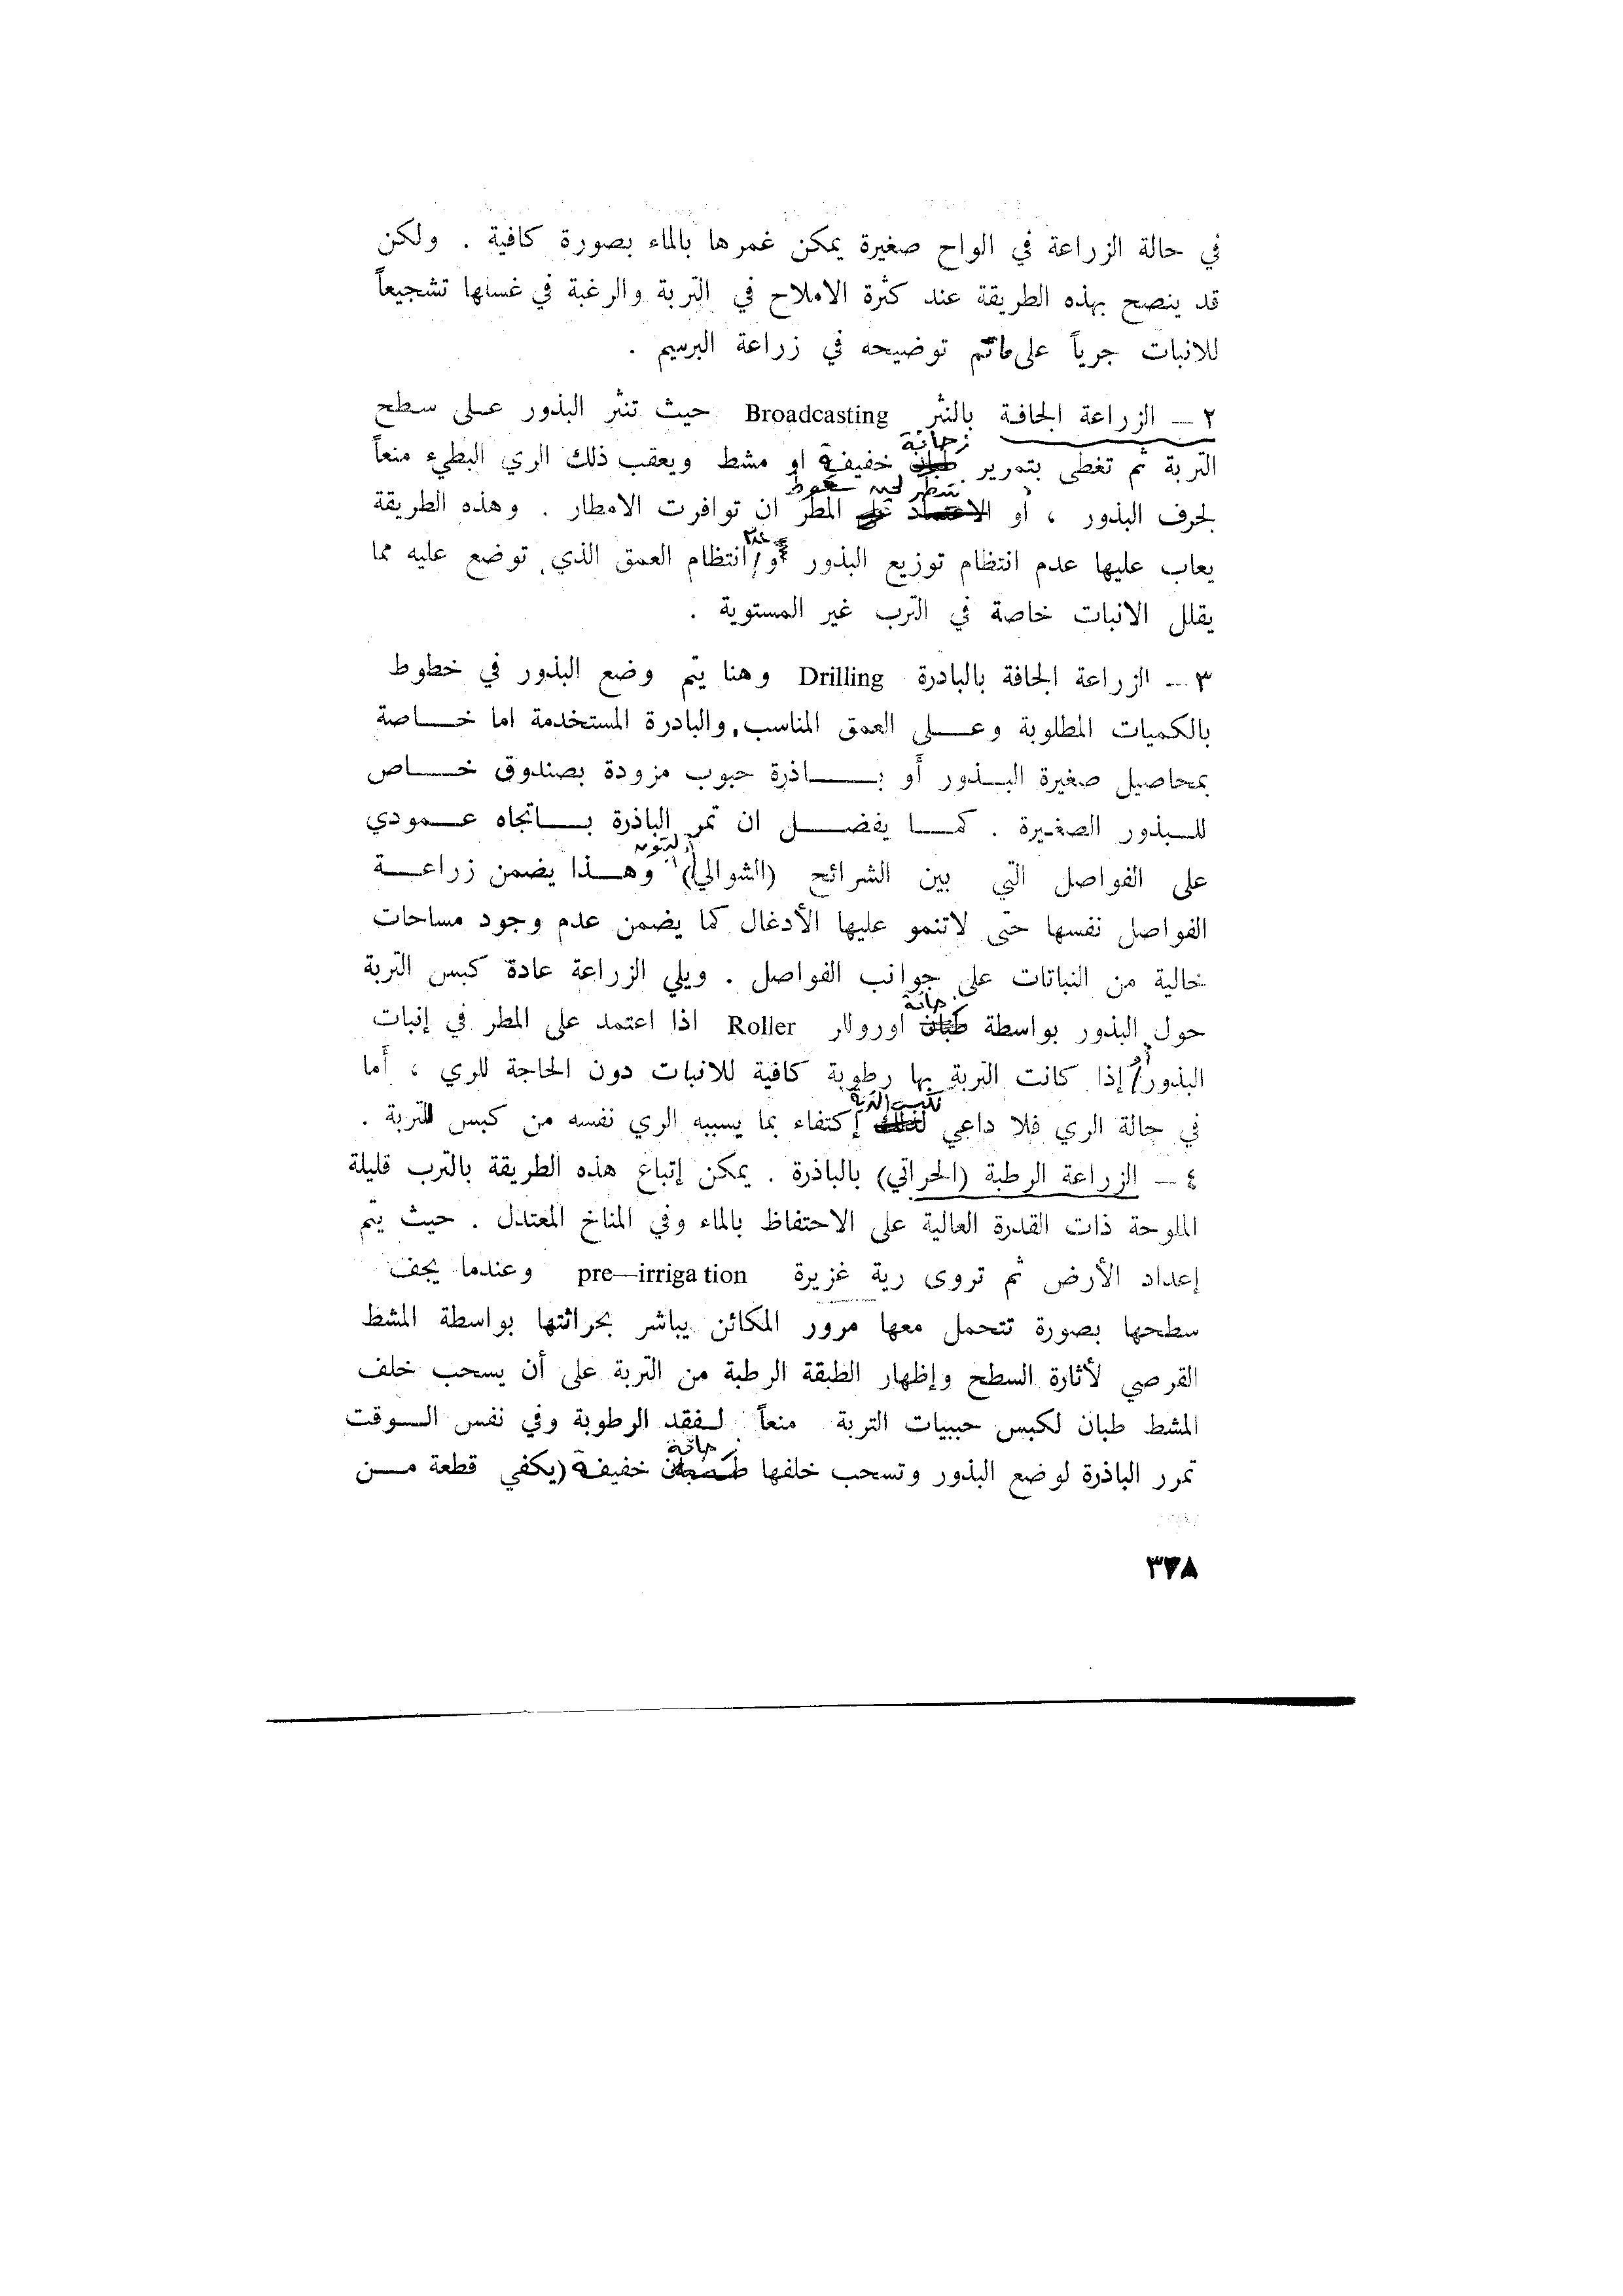 في حالة الزراعة في الواح صغيرة يمكن غمرها بالماء بصورة كافية . ولكن
قد ينصح بهذه الطريقة عند كثرة الاملاح في التربة والرغبة في غسلها تشجيعاً
للانبات جرياً على ماتم توضيحه في زراعة البرسيم .
٢ – الزراعة الجافة بالنثر Broadcasting حيث تنثر البذور على سطح
زحافة
التربة ثم تغطى بتمرير خفيفة او مشط ويعقب ذلك الري البطيء منعاً
ينتظر لحين سقوط
لجرف البذور ، أو المطر ان توافرت الامطار . وهذه الطريقة
عدم
يعاب عليها عدم انتظام توزيع البذور و/انتظام العمق الذي توضع عليه مما
يقلل الانبات خاصة في الترب غير المستوية .
٣ – الزراعة الجافة بالبادرة Drilling وهنا يتم وضع البذور في خطوط
بالكميات المطلوبة وعلى العمق المناسب، والبادرة المستخدمة اما خاصة
بمحاصيل صغيرة البذور أو باذرة حبوب مزودة بصندوق خاص
للبذور الصغيرة . كما يفضل ان تمر الباذرة باتجاه عمودي
أو المتون
على الفواصل التي بين الشرائح (الشوالي) وهذا يضمن زراعة
الفواصل نفسها حتى لاتنمو عليها الأدغال كما يضمن عدم وجود مساحات
خالية من النباتات على جوانب الفواصل . ويلي الزراعة عادة كبس التربة
زحافة
حول البذور بواسطة اورولار Roller اذا اعتمد على المطر في إنبات
أو
البذور/إذا كانت التربة بها رطوبة كافية للانبات دون الحاجة للري ، أما
لكبس التربة
في حالة الري فلا داعي إكتفاء بما يسببه الري نفسه من كبس للتربة .
٤ – الزراعة الرطبة (الحراتي) بالباذرة . يمكن إتباع هذه الطريقة بالترب قليلة
الملوحة ذات القدرة العالية على الاحتفاظ بالماء وفي المناخ المعتدل . حيث يتم
إعداد الأرض ثم تروى رية غزيرة pre—irrigation وعندما يجف
سطحها بصورة تتحمل معها مرور المكائن يباشر بحراثتها بواسطة المشط
القرصي لأثارة السطح وإظهار الطبقة الرطبة من التربة على أن يسحب خلف
المشط طبان لكبس حبيبات التربة منعاً لفقد الرطوبة وفي نفس الوقت
زحافة
تمرر الباذرة لوضع البذور وتسحب خلفها خفيفة (يكفي قطعة من
٣٣٨